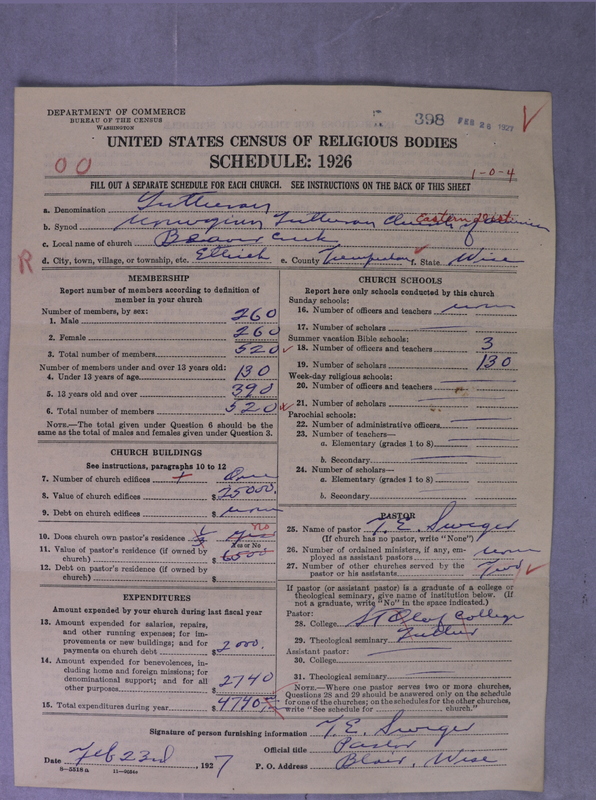 DEPARTMENT OF COMMERCE
BUREAU OF THE CENSUS
WASHINGTON
398 FEB 26 1927
UNITED STATES CENSUS OF RELIGIOUS BODIES
SCHEDULE: 1926
00
1-0-4
FILL OUT A SEPARATE SCHEDULE FOR EACH CHURCH. SEE INSTRUCTIONS ON THE BACK OF THIS SHEET
a. Denomination Lutheran
b. Synod Norwegian Lutheran Church of America
Eastern dist
c. Local name of church Beaver Creek
d. City, town, village, or township, etc. Ettrick e. County Trempealeau f. State Wisc
R
MEMBERSHIP
Report number of members according to definition of member in your church
Number of members, by sex:
1. Male 260
2. Female 260
3. Total number of members 520
Number of members under and over 13 years old:
4. Under 13 years of age 130
5. 13 years old and over 390
6. Total number of members 520
NOTE.—The total given under Question 6 should be
same as the total of males and females given under Question 3.
CHURCH BUILDINGS
See instructions, paragraphs 10 to 12
7. Number of church edifices One
8. Value of church edifices $ 25000.
9. Debt on church edifices $ none
10. Does church own pastor's residence 1/3 yes no
Yes or No
11. Value of pastor's residence (if owned by
church) $ 6500
12. Debt on pastor's residence (if owned by
church) $
EXPENDITURES
Amount expended by your church during last fiscal year
13. Amount expended for salaries, repairs,
and other running expenses; for im-
provements or new buildings; and for
payments on church debt $ 2000.
14. Amount expended for benevolences, in-
cluding home and foreign missions; for
denominational support; and for all
other purposes $ 2740
15. Total expenditures during year $ 4740
CHURCH SCHOOLS
Report here only schools conducted by this church
Sunday schools:
16. Number of officers and teachers none
17. Number of scholars
Summer vacation Bible schools:
18. Number of officers and teachers 3
19. Number of scholars 130
Week-day religious schools:
20. Number of officers and teachers
21. Number of scholars
Parochial schools:
22. Number of administrative officers
23. Number of teachers—
a. Elementary (grades 1 to 8)
b. Secondary
24. Number of scholars—
a. Elementary (grades 1 to 8)
b. Secondary
PASTOR
25. Name of pastor T. E. Sweger
(If church has no pastor, write "None")
26. Number of ordained ministers, if any, em-
ployed as assistant pastors none
27. Number of other churches served by the
pastor or his assistants Two
If pastor (or assistant pastor) is a graduate of a college or
theological seminary, give name of institution below. (If
not a graduate, write "No" in the space indicated.)
Pastor:
28. College St Olaf College
29. Theological seminary Luther
Assistant pastor:
30. College
31. Theological seminary
NOTE.—Where one pastor serves two or more churches,
Questions 28 and 29 should be answered only on the schedule
for one of the churches; on the schedules for the other churches,
write "See schedule for church."
Signature of person furnishing information T. E. Sweger
Official title Pastor
Date Feb 23rd, 1927 P. O. Address Blair, Wisc
8—5518a